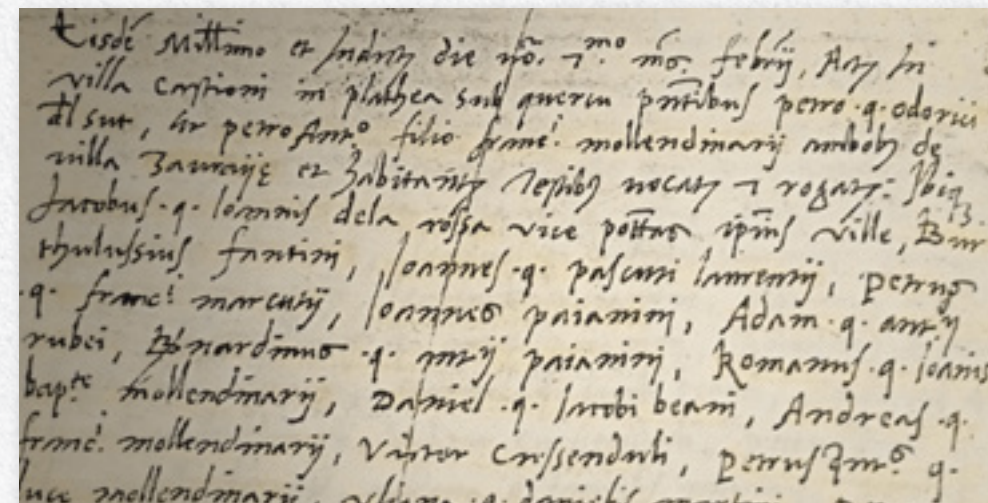 Eisdē Mill̄imo et Indictē die nō. 7.mo m̄s. febrij, Actū In
villa Castioni in plathea sub quercu pn̄tibus petro .q. odorici
dl sut, Ser petro Ant.o filio franc.i mollendinarij ambobȝ de
villa Zauraijȩ et habitantibȝ testibȝ vocatȝ 7 rogatȝ: Ibiqȝ
Jacobus .q. Ioannis dela rossa vice pot̄tas ip̄ius ville, Bar
thulussius fantini, Ioannes .q. pascuti laurentij, Petrus
.q. franc.i marcutij, Ioannes paianini, Adam .q. antȝij
rubei, Bn̄ardinus .q. antȝij paianini, Romanus .q. Ioānis
bap.te mollendinarij, Daniel .q. Iacobi beani, Andreas .q.
franc.i mollendinarij, Victor Cussenduli, Petrus q.
luce mollendinarij, .q. danielis